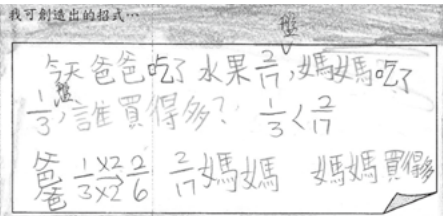 我可創造出的招式…
今天爸爸吃了水果2/17盤,媽媽吃了
1/3盤,誰買得多? 1/3<2/17
爸爸 1×2/3×2→2/6 2/17媽媽 媽媽買得多